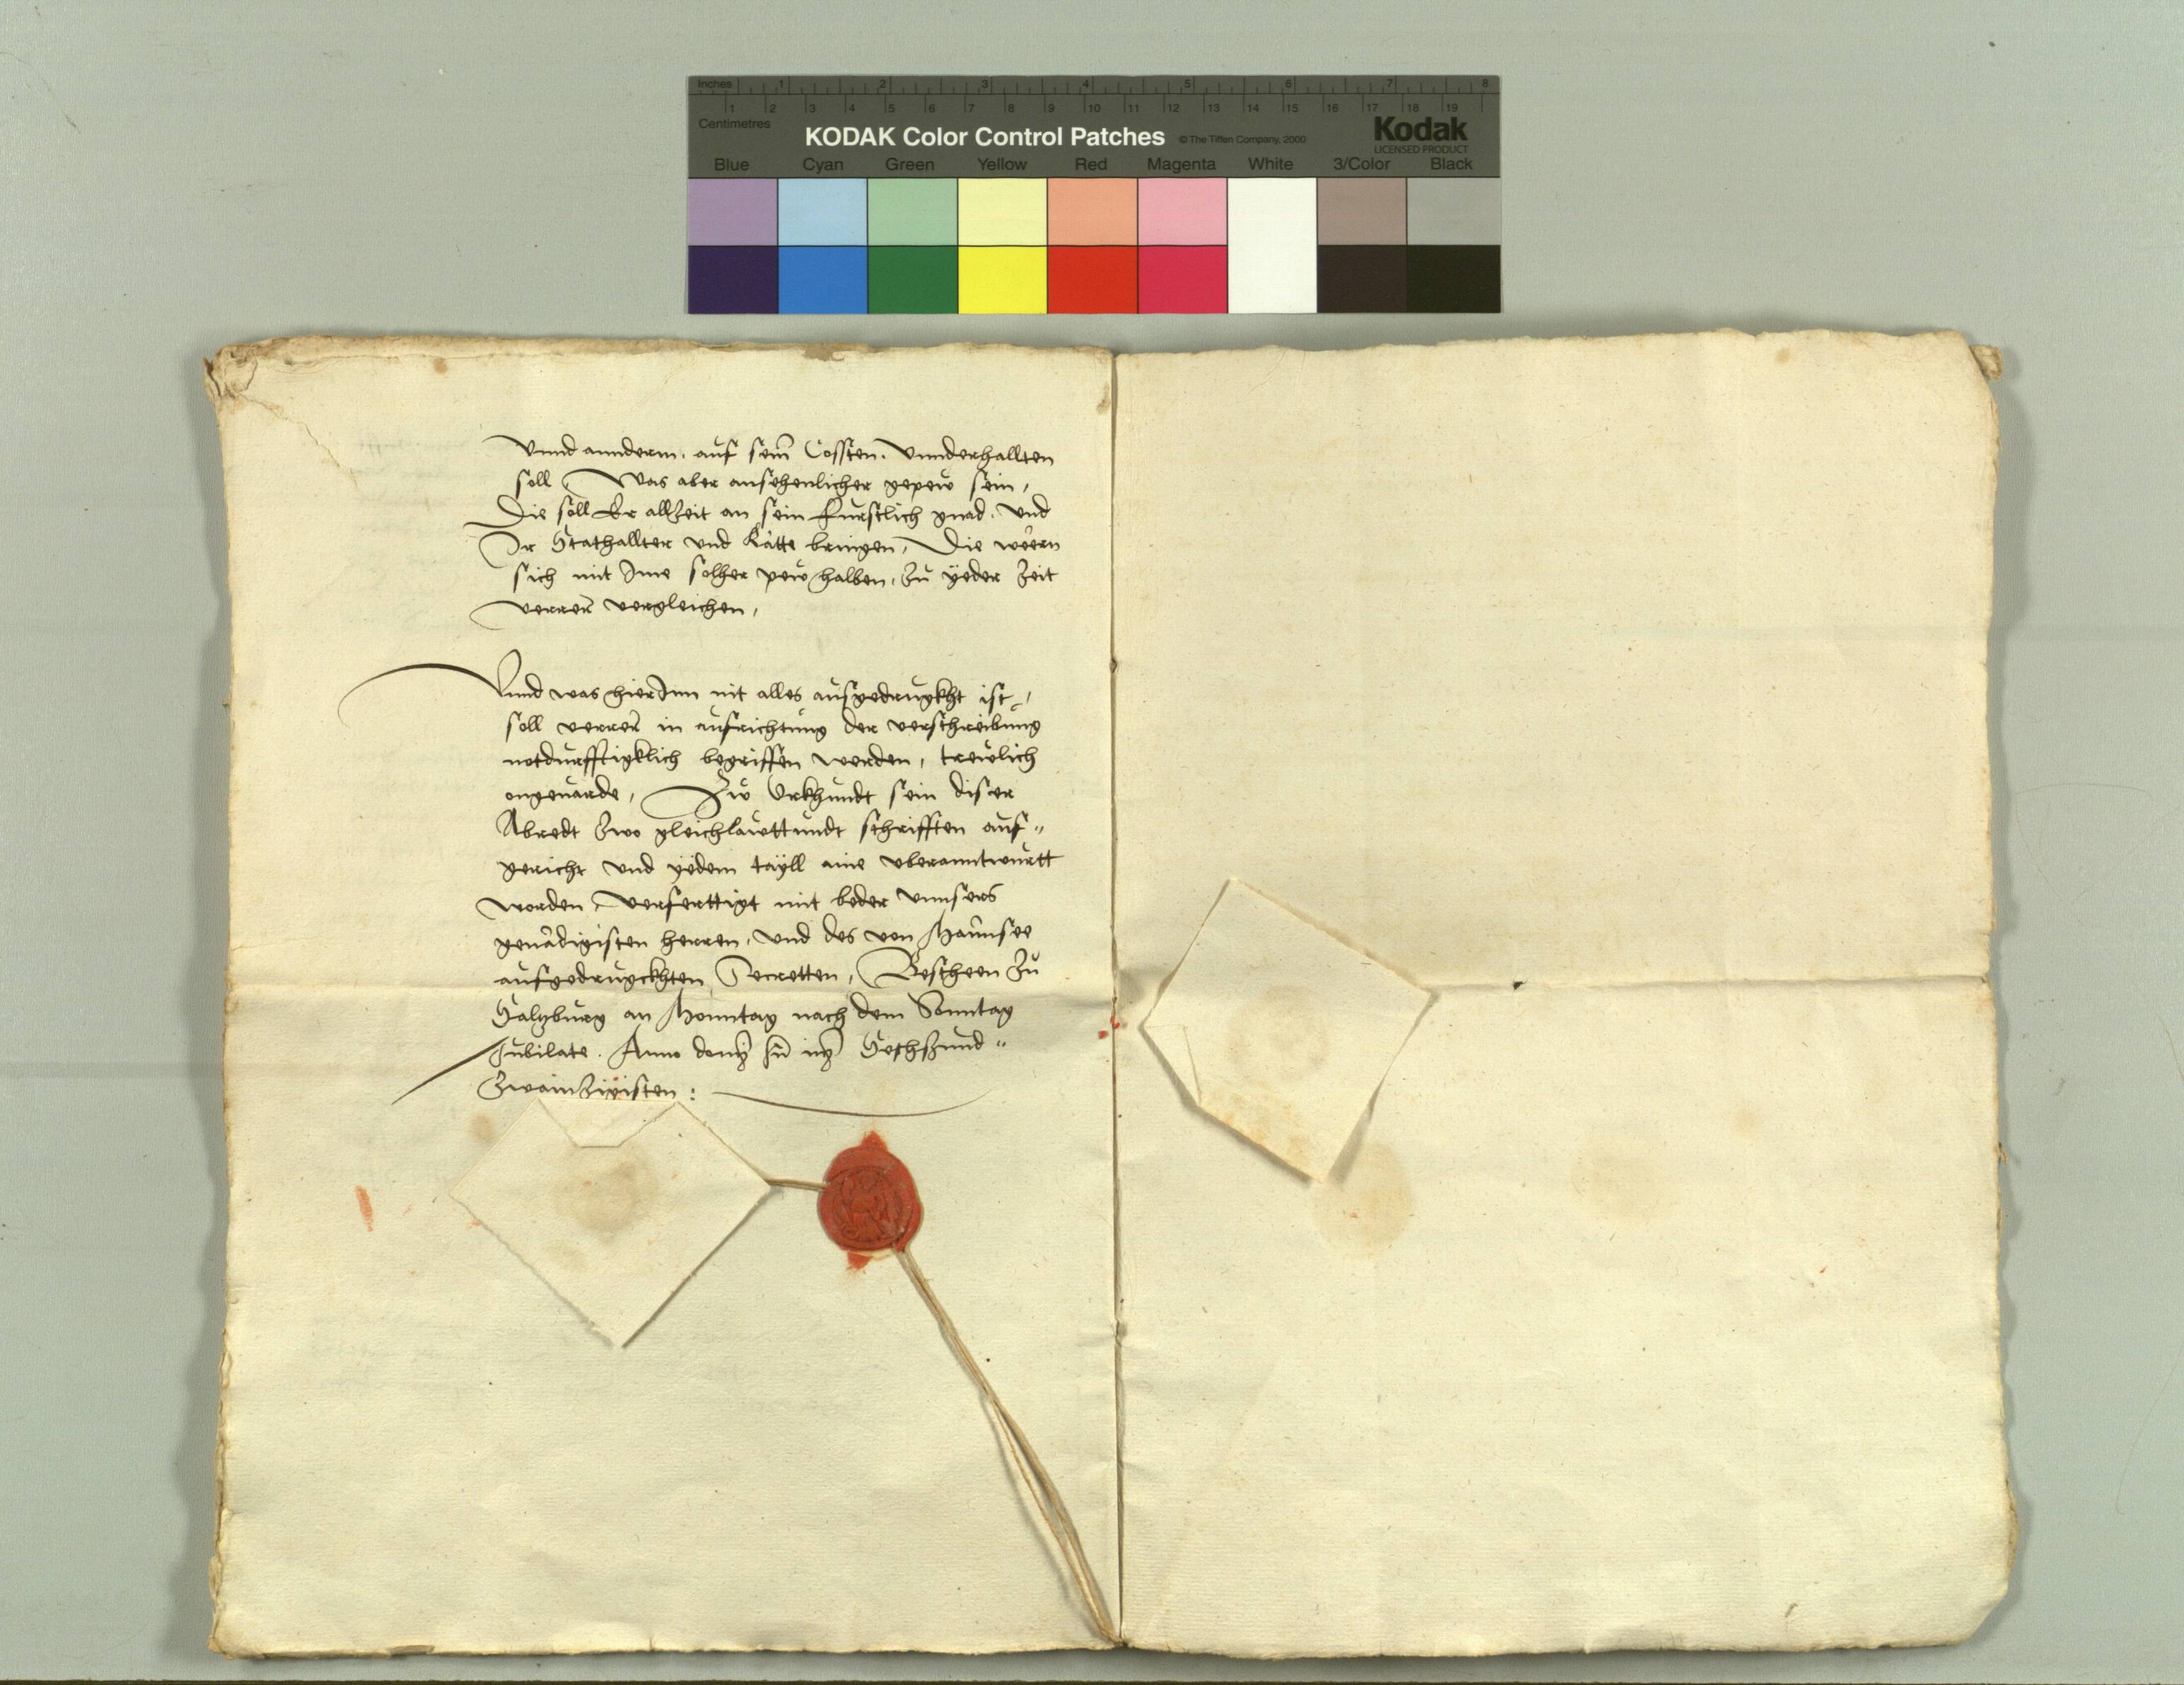 Inches 1 2 3 4 5 6 7 8
1 2 3 4 5 6 7 8 9 10 11 12 13 14 15 16 17 18 19
Centimetres
KODAK Color Control Patches © The Tiffen Company, 2000 Kodak
LICENSED PRODUCT
Blue Cyan Green Yellow Red Magenta White 3/Color Black
Vnnd annderm, auf sein Cossten, vnnderhallten
soll, Was aber ansehenlicher gepew sein,
Die soll Er allzeit an sein furstlich gnad, vnd
Ir Stathallter vnd Räte bringen, Die
sich mit Ime solher pew halben, zu yeder zeit
verrer vergleichen,
Vnnd was hierInn nit alles ausgedrugkht ist,
soll verrer in aufrichtung der verschreibung
notdurfftigklich begriffen werden, trewlich
ongeuärde, Zw Vrkhundt sein diser
Abredt zwo gleichlawttundt schrifften auf-
gericht vnd yedem tayll aine vberanntwurtt
worden, verferttigt mit beder vnnsers
genädigisten herren, vnd des von
aufgedrugckhten Secretten, Bescheen zu
Salzburg an Monntag nach dem Sonntag
Jubilate. Anno domi Im Sechsund-
zwainzigisten: